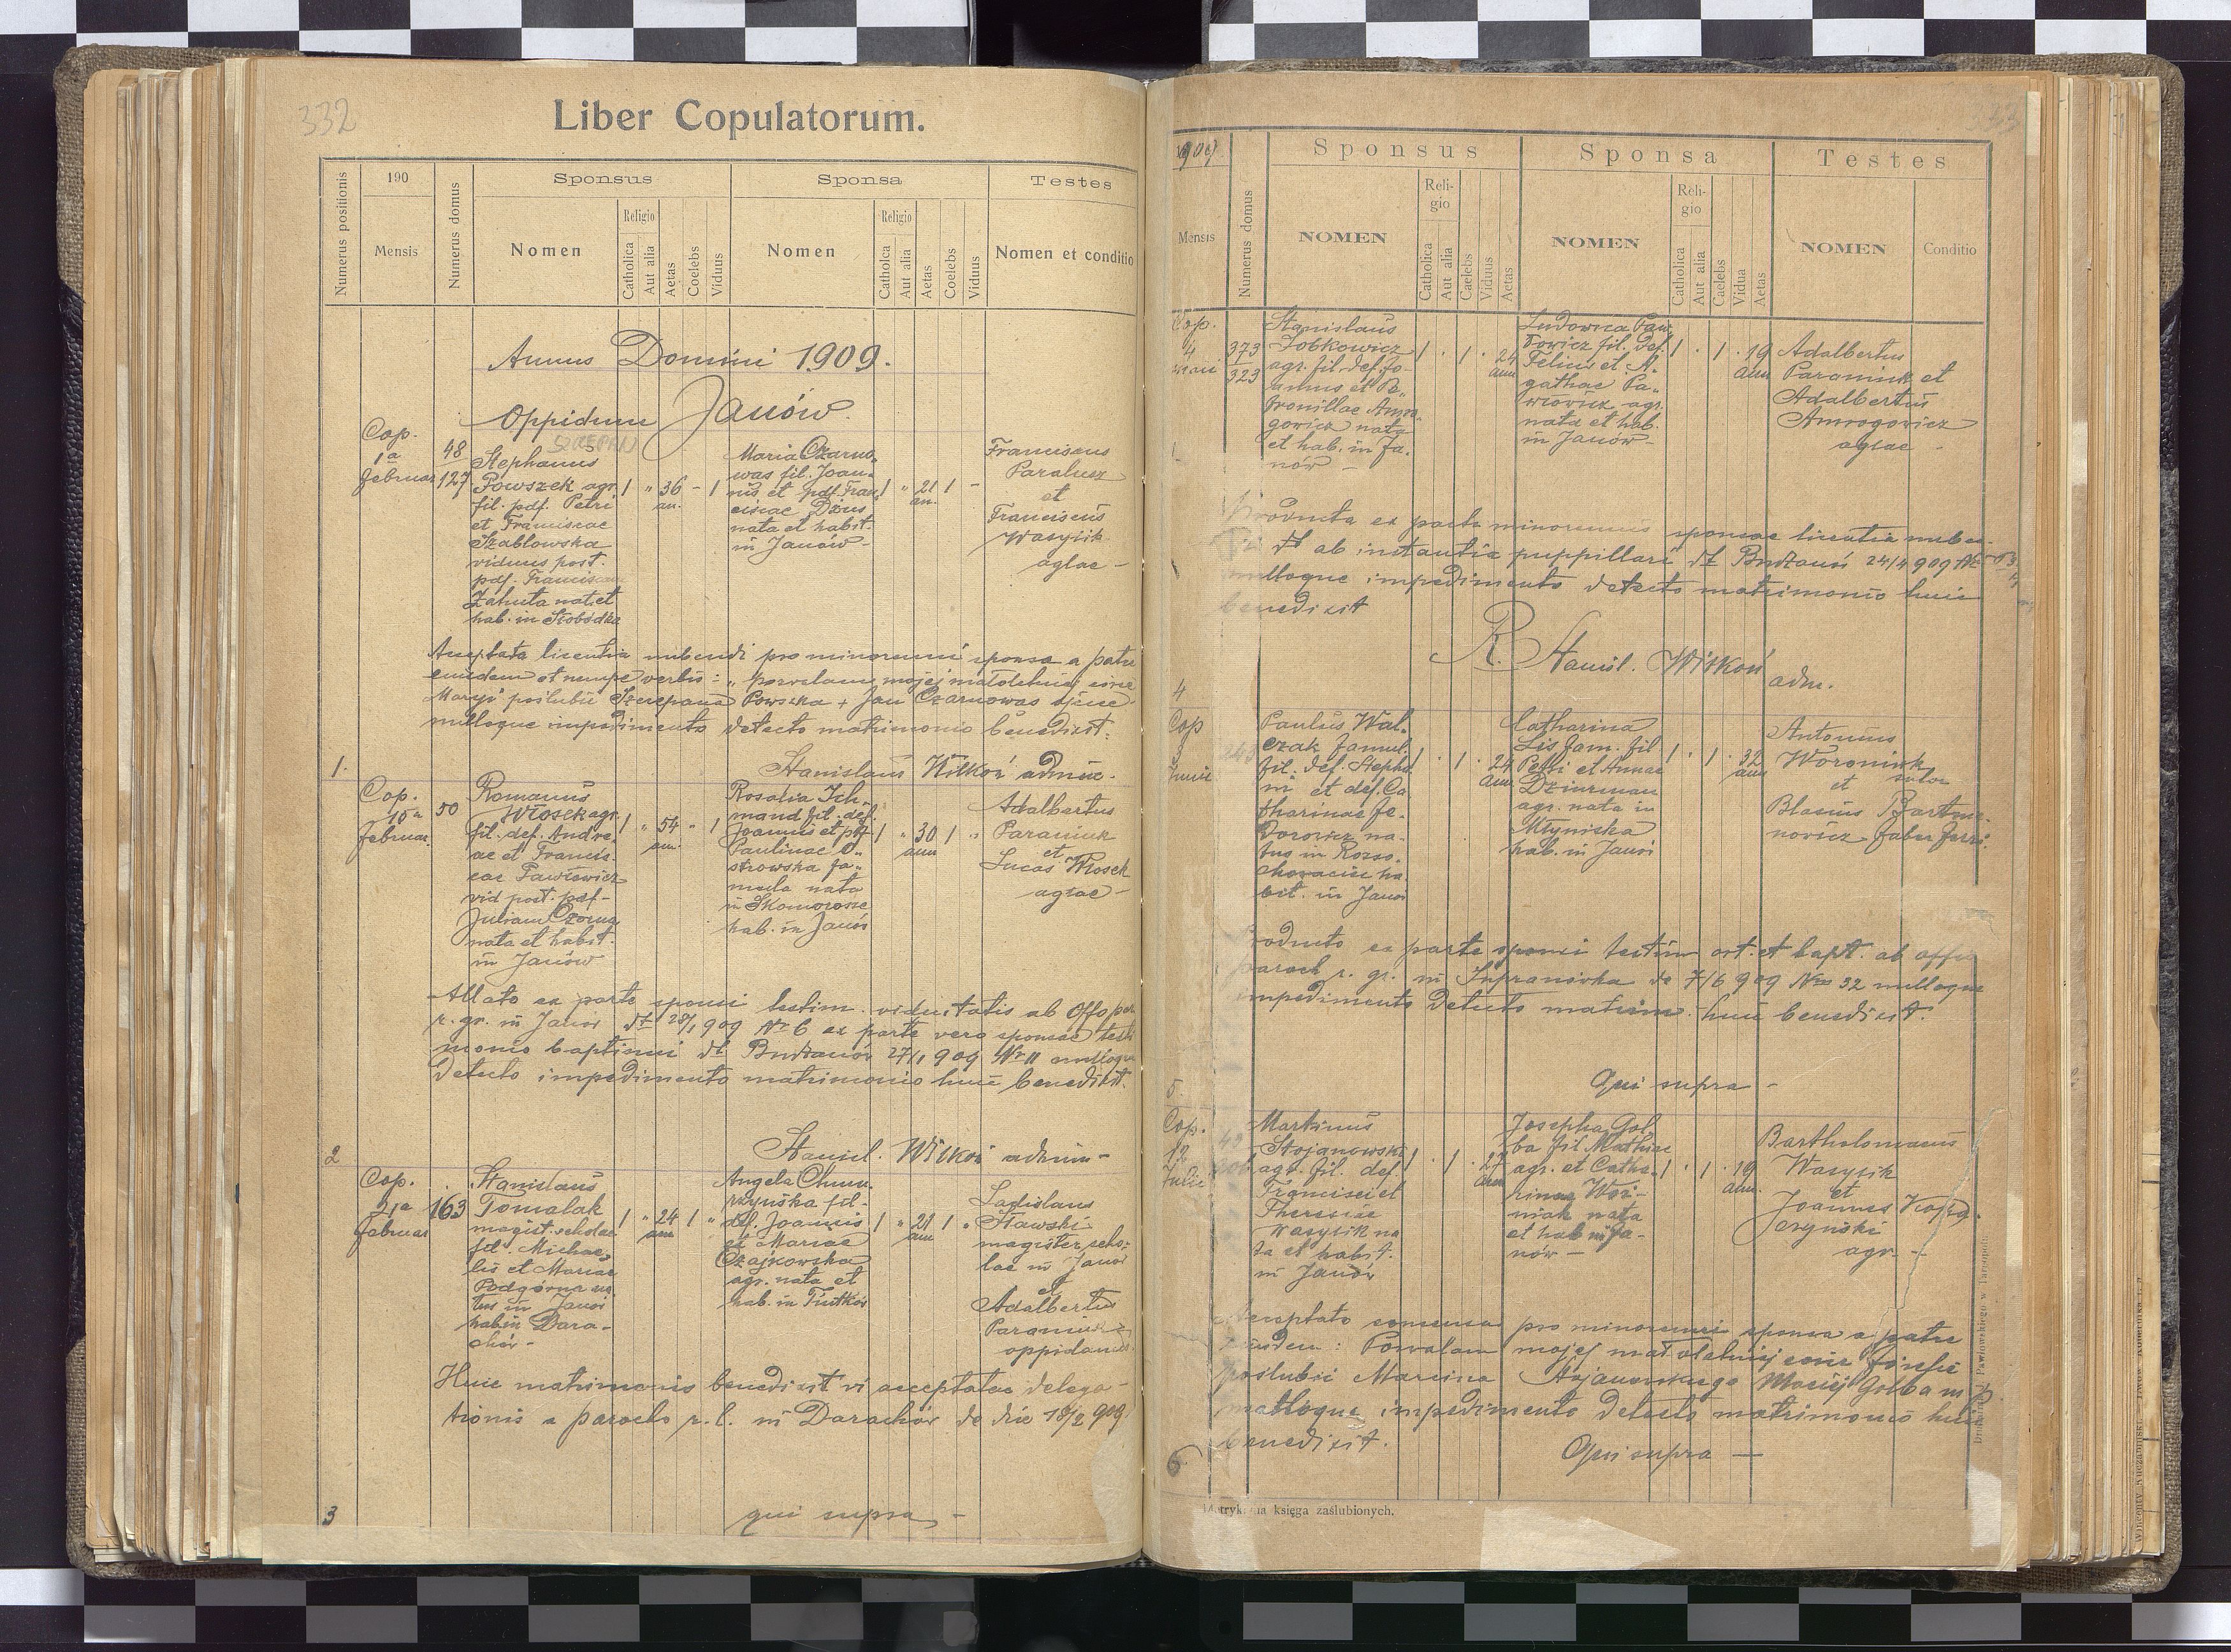 332
Liber Copulatorum.
Numerus positionis
190
Mensis
Numerus domus
Sponsus
Nomen
Religio
Catholica
Aut alia
Aetas
Coelebs
Viduus
Sponsa
Nomen
Religio
Catholca
Aut alia
Aetas
Coelebs
Viduus
Testes
Nomen et conditio
Annus Domini 1909.
Oppidum Janów
Cop.
1a
Februar
48
127
Stephanus
Powszek agr.
fil. pdf. Petri
et Franciscae
Szablowska
viduus post.
pdf. Franciscam
Zahuta nat. et
hab. in Słobódka
36
an.
Maria Czarno
was fil. Joan
nis et pdf. Fran
ciscae Dzus
nata et habit.
in Janów
21
an.
Franciscus
Paraluez
et
Franciscus
Wasylik
aglae
Acceptata licentia nubendi pro minorenni sponsa a patre
eiusdem et nempe verbis: "pozwalam mojej małoletniej córce
Maryi poślubić Szczepana Powszka + Jan Czarnowas ojciec
nulloque impedimento detecto matrimonio benedixit:
Stanislaus Wilkoń admin.
1.
Cop.
10a
Februar.
50
Romanus
Włosek agr.
fil. def. Andre
ae et Francis
cae Pawłowicz
vid post. pdf
Juliam Czorna
nata et habit.
in Janów
54
an.
Rosalia Ich
mand fil. def.
Joannis et pdf
Paulinae O
strowska fa
mula nata
in Skomorosze
hab. in Janów
30
ann
Adalbertus
Paraniuk
et
Lucas Włosek
aglae
Allato ex parte sponsi testim. viduitatis ab Offo par
r. gr. in Janów dt 28/1 909 Nr 6 ex parte vero sponsae testi
monio baptismi dt Budzanów 27/1 909 Nr 11 nulloque
detecto impedimento matrimonio huic benedixit.
Stanisl. Wilkoń admin
2
Cop.
21a
Februar
163
Stanislaus
Tomalak
magist. scholae
fil. Michae
lis et Mariae
Podgórna na
tus in Janów
hab in Dara
chów
24
ann
Angela Chmu
rzyńska fil
def. Joannis
et Mariae
Czajkowska
agr. nata et
hab. in Tiutków
21
ann
Ladislaus
Stawski
magister scho
lae in Janów
et
Adalbertus
Paraniuk
oppidanus
Huic matrimonio benedixit vi acceptatae delega
tionis a parocho r. l. in Darachów de die 18/2 909
qui supra
3
1909
Mensis
Numerus domus
Sponsus
NOMEN
Reli-
gio
Catholica
Aut alia
Caelebs
Viduus
Aetas
Sponsa
NOMEN
Reli-
gio
Catholica
Aut alia
Caelebs
Vidua
Aetas
Testes
NOMEN
Conditio
Cop.
4
Maii
373
323
Stanislaus
Jobkowicz
agr. fil. def. Jo
annis et Pe
tronillae Amro
gowicz nata
et hab. in Ja
nów
24
ann
Ludovica Paw
łowicz fil. def.
Felicis et A
gathae Pa
włowicz agr.
nata et hab.
in Janów
19
ann
Adalbertus
Paraniuk et
Adalbertus
Amrogowicz
aglae
Producta ex parte minorennis sponsae licentia nuben
di dt ab instantia puppillari dt Budzanów 24/4 909
nulloque impedimento detecto matrimonio huic
benedixit
R. Stanisl. Wilkoń adm.
4
Cop
Junii
Paulus Wal
czak famul.
fil. def. Stepha
ni et def. Ca
tharinae Fe
dorowicz na
tus in Rozso
chowaciec ha
bit. in Janów
24
ann
Catharina
Lis fam. fil
Petri et Annae
Dziurman
agr. nata in
Młyniska
hab. in Janów
32
ann
Antonius
Woroniuk
sutor
et
Blasius Bartma
nowicz faber ferr.
Producto ex parte sponsi testim ort. et bapt. ab offo
paroch r. gr. in Supranówka de 7/6 909 Nro 32 nulloque
impedimento detecto matrim. huic benedixit.
Qui supra
5.
Cop.
12
Julii
Martinus
Stojanowski
agr. fil. def
Francisci et
Theresiae
Wasylik na
ta et habit.
in Janów
27
ann
Josepha Gol
ba fil Mathiae
agr. et Catha
rinae Woź
niak nata
et hab in Ja
nów
19
ann.
Bartholomaeus
Wasylik
et
Joannes
agr.
Acceptato consensu pro minorenni sponsa a patre
eiusdem: Pozwalam mojej małoletniej córce Józefie
poślubić Marcina Stojanowskiego Maciej Golba mp
nulloque impedimento detecto matrimonio huic
benedixit.
Qui supra
6
Metrykalna księga zaślubionych.